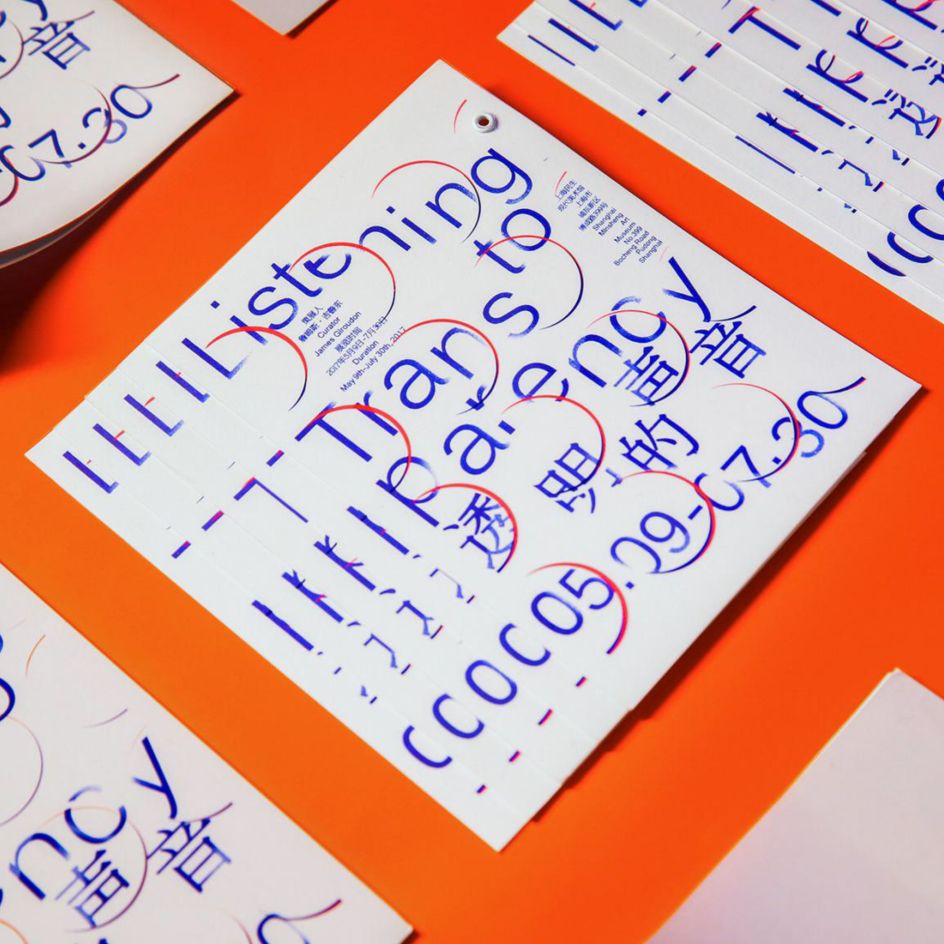 Listening
to
上海民生
现代美术馆
上海市
浦东新区
博成路399号
Shanghai
Minsheng
Art
Museum
No.399
Bocheng Road
Pudong
Shanghai
策展人
Curator
James Giroudon
展览时间
2017年5月9日-7月30日
Duration
May 9th-July 30th, 2017
Trans
parency
声音
透明的
05.09-07.30
声音
07.30
ency
声音